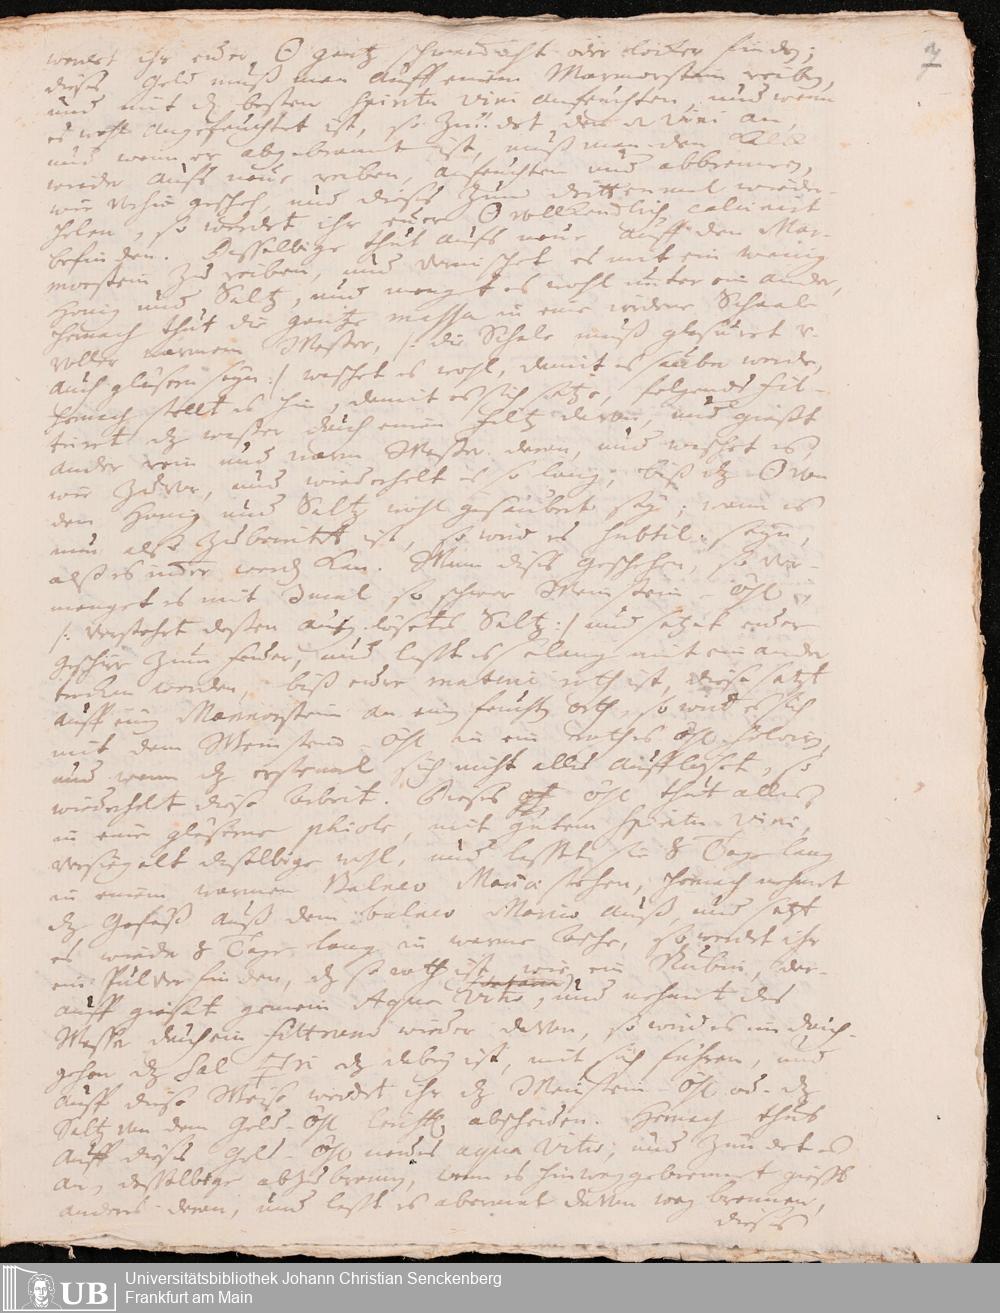 7
werdet ihr euer ☉ gantz schwammicht oder locker finden;
dieses Gold muß man auff einem Marmorstein reiben,
und mit dz besten Spiritu Vini anfeuchten, und wenn
es wohl angefeuchtet ist, so zündet den Vini an,
und wenn er abgebrannt ist, muß man den Kalk
wieder auffs neue reiben, anfeuchten und abbrennen,
wie vorhin gescheh, und dieses zum drittenmal wieder-
holen, so werdet ihr euer ☉ vollkomlich calcinirt
befinden. Dasselbige thut aufs neue auff den Mar-
morstein zu reiben, und vermischet es mit ein wenig
Honig und Saltz, und menget es wohl unter ein ander,
hernach thut die gantze massa in eine irdene Schaale
voller warmem Wasser, /: die Schale muß glasuret v.
auch gläsern seyn :/ waschet es wohl, damit es sauber werde,
hernach stellt es hin, damit es sich setze, folgends fil-
trirt dz wasser durch einen Filtz davon, und giesst
ander rein und warm Wasser daran, und waschet es,
wie zuvor, und wiederholt es so lang, biß dz ☉ von
den Honig und Saltz wohl gesäubert sey; wenn es
nun also zubereitet ist, so wird es subtil seyn,
alß es immer werden kan. Wenn dieses geschehen, so ver-
menget es mit 3mal so schwer Weinstein-Öhl
/: verstehet dessen aufgelösetes Saltz :/ und setzet euer
Geschirr zum feuer, und lasst es so lang mit einander
kochen werden, biß eure materie roth ist, diese setzt
auff einen Marmorstein an ein feucht orth, so wird es sich
mit dem Weinstein-Öhl in ein rothes Öhl solviren,
und wenn dz erstemal sich nicht alles aufflöset, so
wiederholt diese Arbeit. Dieses Öhl thut alles
in eine gläserne phiole, mit gutem Spiritu Vini,
versiegelt dieselbige wohl, und lasset sie 8 Tage lang
in einem warmen Balneo Mariae stehen, hernach nehmet
dz Gefäß auß dem balneo Mariae auß, und setzt
es wieder 8 Tage lang in warme Asche, so werdet ihr
ein Pulver finden, dz so roth ist, wie ein Rubin, dar-
auff giesset gemein Aqua Vitae, und nehmet das
Wasser durch ein filtrand wieder davon, so wird es im durch-
gehen dz Sal ♁ri dz dabey ist, mit sich führen, und
auff diese Weise werdet ihr dz Weinstein-Öhl od. dz
Saltz von dem Gold-Öhl leichtl. abscheiden. Hernach thut
auff dieses Gold-Öhl neues aqua Vitae; und zündet es
an, dasselbige abzubrennen, wenn es hinweggebrennet giesst
anders daran, und lasst es abermal davon weg brennen,
dieses
Universitätsbibliothek Johann Christian Senckenberg
Frankfurt am Main
UB